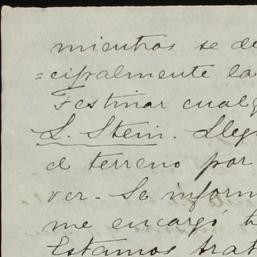 mientras se de
=cipalmente la
Festinar cualq
S. Stein. Lleg
el terreno por
ver. Se inform
me encargó t
Estamos trat